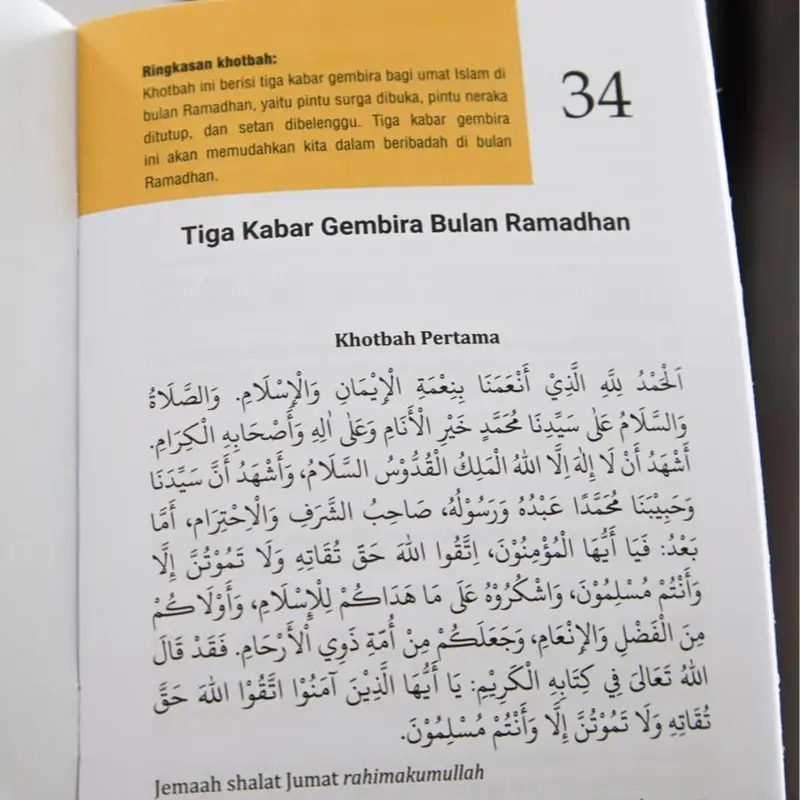 Ringkasan khotbah:
Khotbah ini berisi tiga kabar gembira bagi umat Islam di
bulan Ramadhan, yaitu pintu surga dibuka, pintu neraka
ditutup, dan setan dibelenggu. Tiga kabar gembira
ini akan memudahkan kita dalam beribadah di bulan
Ramadhan.
34
Tiga Kabar Gembira Bulan Ramadhan
Khotbah Pertama
اَلْحَمْدُ لِلّٰهِ الَّذِيْ أَنْعَمَنَا بِنِعْمَةِ الْإِيْمَانِ وَالْإِسْلَامِ. وَالصَّلَاةُ
وَالسَّلَامُ عَلٰى سَيِّدِنَا مُحَمَّدٍ خَيْرِ الْأَنَامِ وَعَلٰى اٰلِهِ وَأَصْحَابِهِ الْكِرَامِ.
أَشْهَدُ أَنْ لَا إِلٰهَ إِلَّا اللهُ الْمَلِكُ الْقُدُّوْسُ السَّلَامُ، وَأَشْهَدُ أَنَّ سَيِّدَنَا
وَحَبِيْبَنَا مُحَمَّدًا عَبْدُهُ وَرَسُوْلُهُ، صَاحِبُ الشَّرَفِ وَالْاِحْتِرَامِ، أَمَّا
بَعْدُ: فَيَا أَيُّهَا الْمُؤْمِنُوْنَ، اِتَّقُوا اللهَ حَقَّ تُقَاتِهِ وَلَا تَمُوْتُنَّ إِلَّا
وَأَنْتُمْ مُسْلِمُوْنَ، وَاشْكُرُوْهُ عَلَى مَا هَدَاكُمْ لِلْإِسْلَامِ، وَأَوْلَاكُمْ
مِنَ الْفَضْلِ وَالْإِنْعَامِ، وَجَعَلَكُمْ مِنْ أُمَّةِ ذَوِي اْلأَرْحَامِ. فَقَدْ قَالَ
اللهُ تَعَالىَ فِي كِتَابِهِ الْكَرِيْمِ: يَا أَيُّهَا الَّذِيْنَ آمَنُوْا اتَّقُوْا اللهَ حَقَّ
تُقَاتِهِ وَلَا تَمُوْتُنَّ إِلَّا وَأَنْتُمْ مُسْلِمُوْنَ.
Jemaah shalat Jumat rahimakumullah